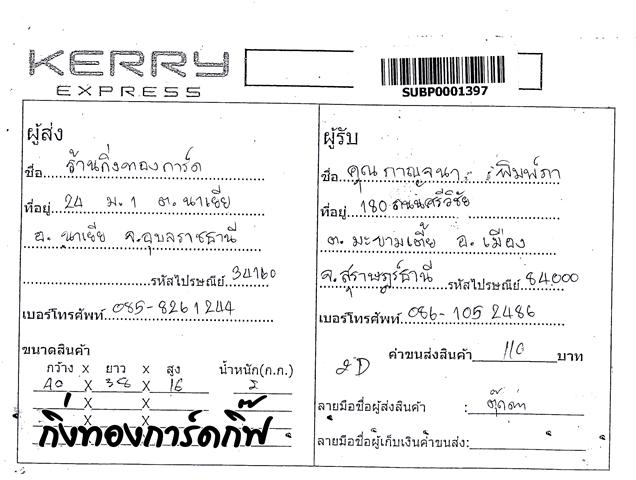 KERRY
EXPRESS
SUBP0001397
ผู้ส่ง
ชื่อ ร้านกิ่งทองการ์ด
ที่อยู่ 24 ม.1 ต.นาเยีย
อ. นาเยีย จ.อุบลราชธานี
รหัสไปรษณีย์ 34160
เบอร์โทรศัพท์ 085-8261244
ขนาดสินค้า
กว้าง X ยาว X สูง น้ำหนัก(ก.ก.)
40 X 38 X 16
X X
X X
กิ่งทองการ์ดกิ๊ฟ
ผู้รับ
ชื่อ คุณ กาญจนา พิมพ์ภา
ที่อยู่ 180 ถนนศรีวิชัย
ต. มะขามเตี้ย อ. เมือง
จ.สุราษฎร์ธานี รหัสไปรษณีย์ 84000
เบอร์โทรศัพท์ 086-105 2486
2D ค่าขนส่งสินค้า 110 บาท
ลายมือชื่อผู้ส่งสินค้า :
ลายมือชื่อผู้เก็บเงินค่าขนส่ง: